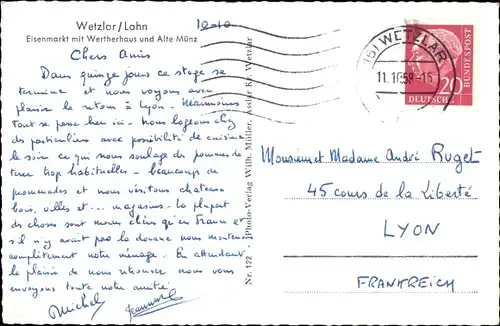 Wetzlar/Lahn
Eisenmarkt mit Wertherhaus und Alte Münz
10-10
Chers Amis
Dans quinze jours ce stage se
termine et nous voyons avec
plaisir le retour à Lyon - Néanmoins
tout se passe bien ici - Nous logeons chez
des particuliers avec possibilité de cuisine
le soir ce qui nous soulage des pommes de
terre trop habituelles - beaucoup de
promenades et nous visitons chateaux
bois, villes et... magasins - la plupart
des choses sont moins chères qu'en France et
s'il n'y avait pas la douane nous monterions
complètement notre ménage. En attendant
le plaisir de vous retrouver nous vous
envoyons toute notre amitié
Michel Jeannine
Nr. 122 - Photo-Verlag Wilh. Müller, Asslar Kr. Wetzlar
(16) WETZLAR
11.10.58-15
20
DEUTSCHE
BUNDESPOST
Monsieur et Madame André Ruget
45 cours de la Liberté
LYON
FRANKREICH